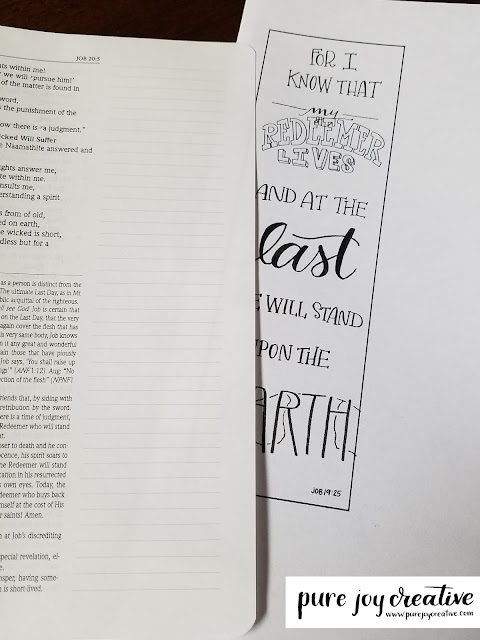 JOB 20:5
ts within me!
we will ʳpursue him!'
of the matter is found in
word,
s the punishment of the
ow there is ᵃa judgment."
icked Will Suffer
e Naamathite answered and
ghts answer me,
te within me.
nsults me,
erstanding a spirit
s from of old,
ed on earth,
e wicked is short,
dless but for a
as a person is distinct from the
The ultimate Last Day, as in Mt
blic acquittal of the righteous.
ll see God. Job is certain that
on the Last Day, that the very
again cover the flesh that has
is very same body, Job knows
n it any great and wonderful
ain those that have piously
Job says, 'You shall raise up
ngs'" (ANF 1:12). Aug: "No
ection of the flesh" (NPNF1
riends that, by siding with
retribution by the sword.
here is a time of judgment,
Redeemer who will stand
t.
oser to death and he con-
ocence, his spirit soars to
he Redeemer will stand
cation in his resurrected
s own eyes. Today, the
deemer who buys back
imself at the cost of His
r saints! Amen.
n at Job's discrediting
pecial revelation, el-
e.
osper, having some-
n is short-lived.
FOR I
KNOW THAT
my
REDEEMER
LIVES
AND AT THE
last
E WILL STAND
UPON THE
EARTH
JOB 19:25
pure joy creative
www.purejoycreative.com